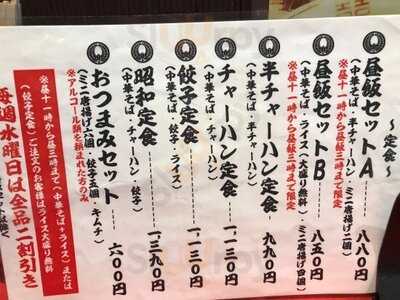 ~定食~
昼飯セットA 八八〇円
(中華そば・半チャーハン・ミニ唐揚げ二個)
※昼十一時から昼三時まで限定
昼飯セットB 八五〇円
(中華そば・ライス(大盛り無料)・ミニ唐揚げ二個)
※昼十一時から昼三時まで限定
半チャーハン定食 九九〇円
(中華そば・半チャーハン)
チャーハン定食 一、一三〇円
(中華そば・チャーハン)
餃子定食 一、一三〇円
(中華そば・餃子・ライス)
昭和定食 一、三九〇円
(中華そば・半チャーハン・餃子)
おつまみセット 六〇〇円
(ミニ唐揚げ六個・餃子五個・キムチ)
※アルコール類を頼まれた方のみ
※昼十一時から昼三時まで(中華そば+ライス)または
(餃子定食)ご注文のお客様はライス大盛り無料
毎週水曜日は全品二割引き